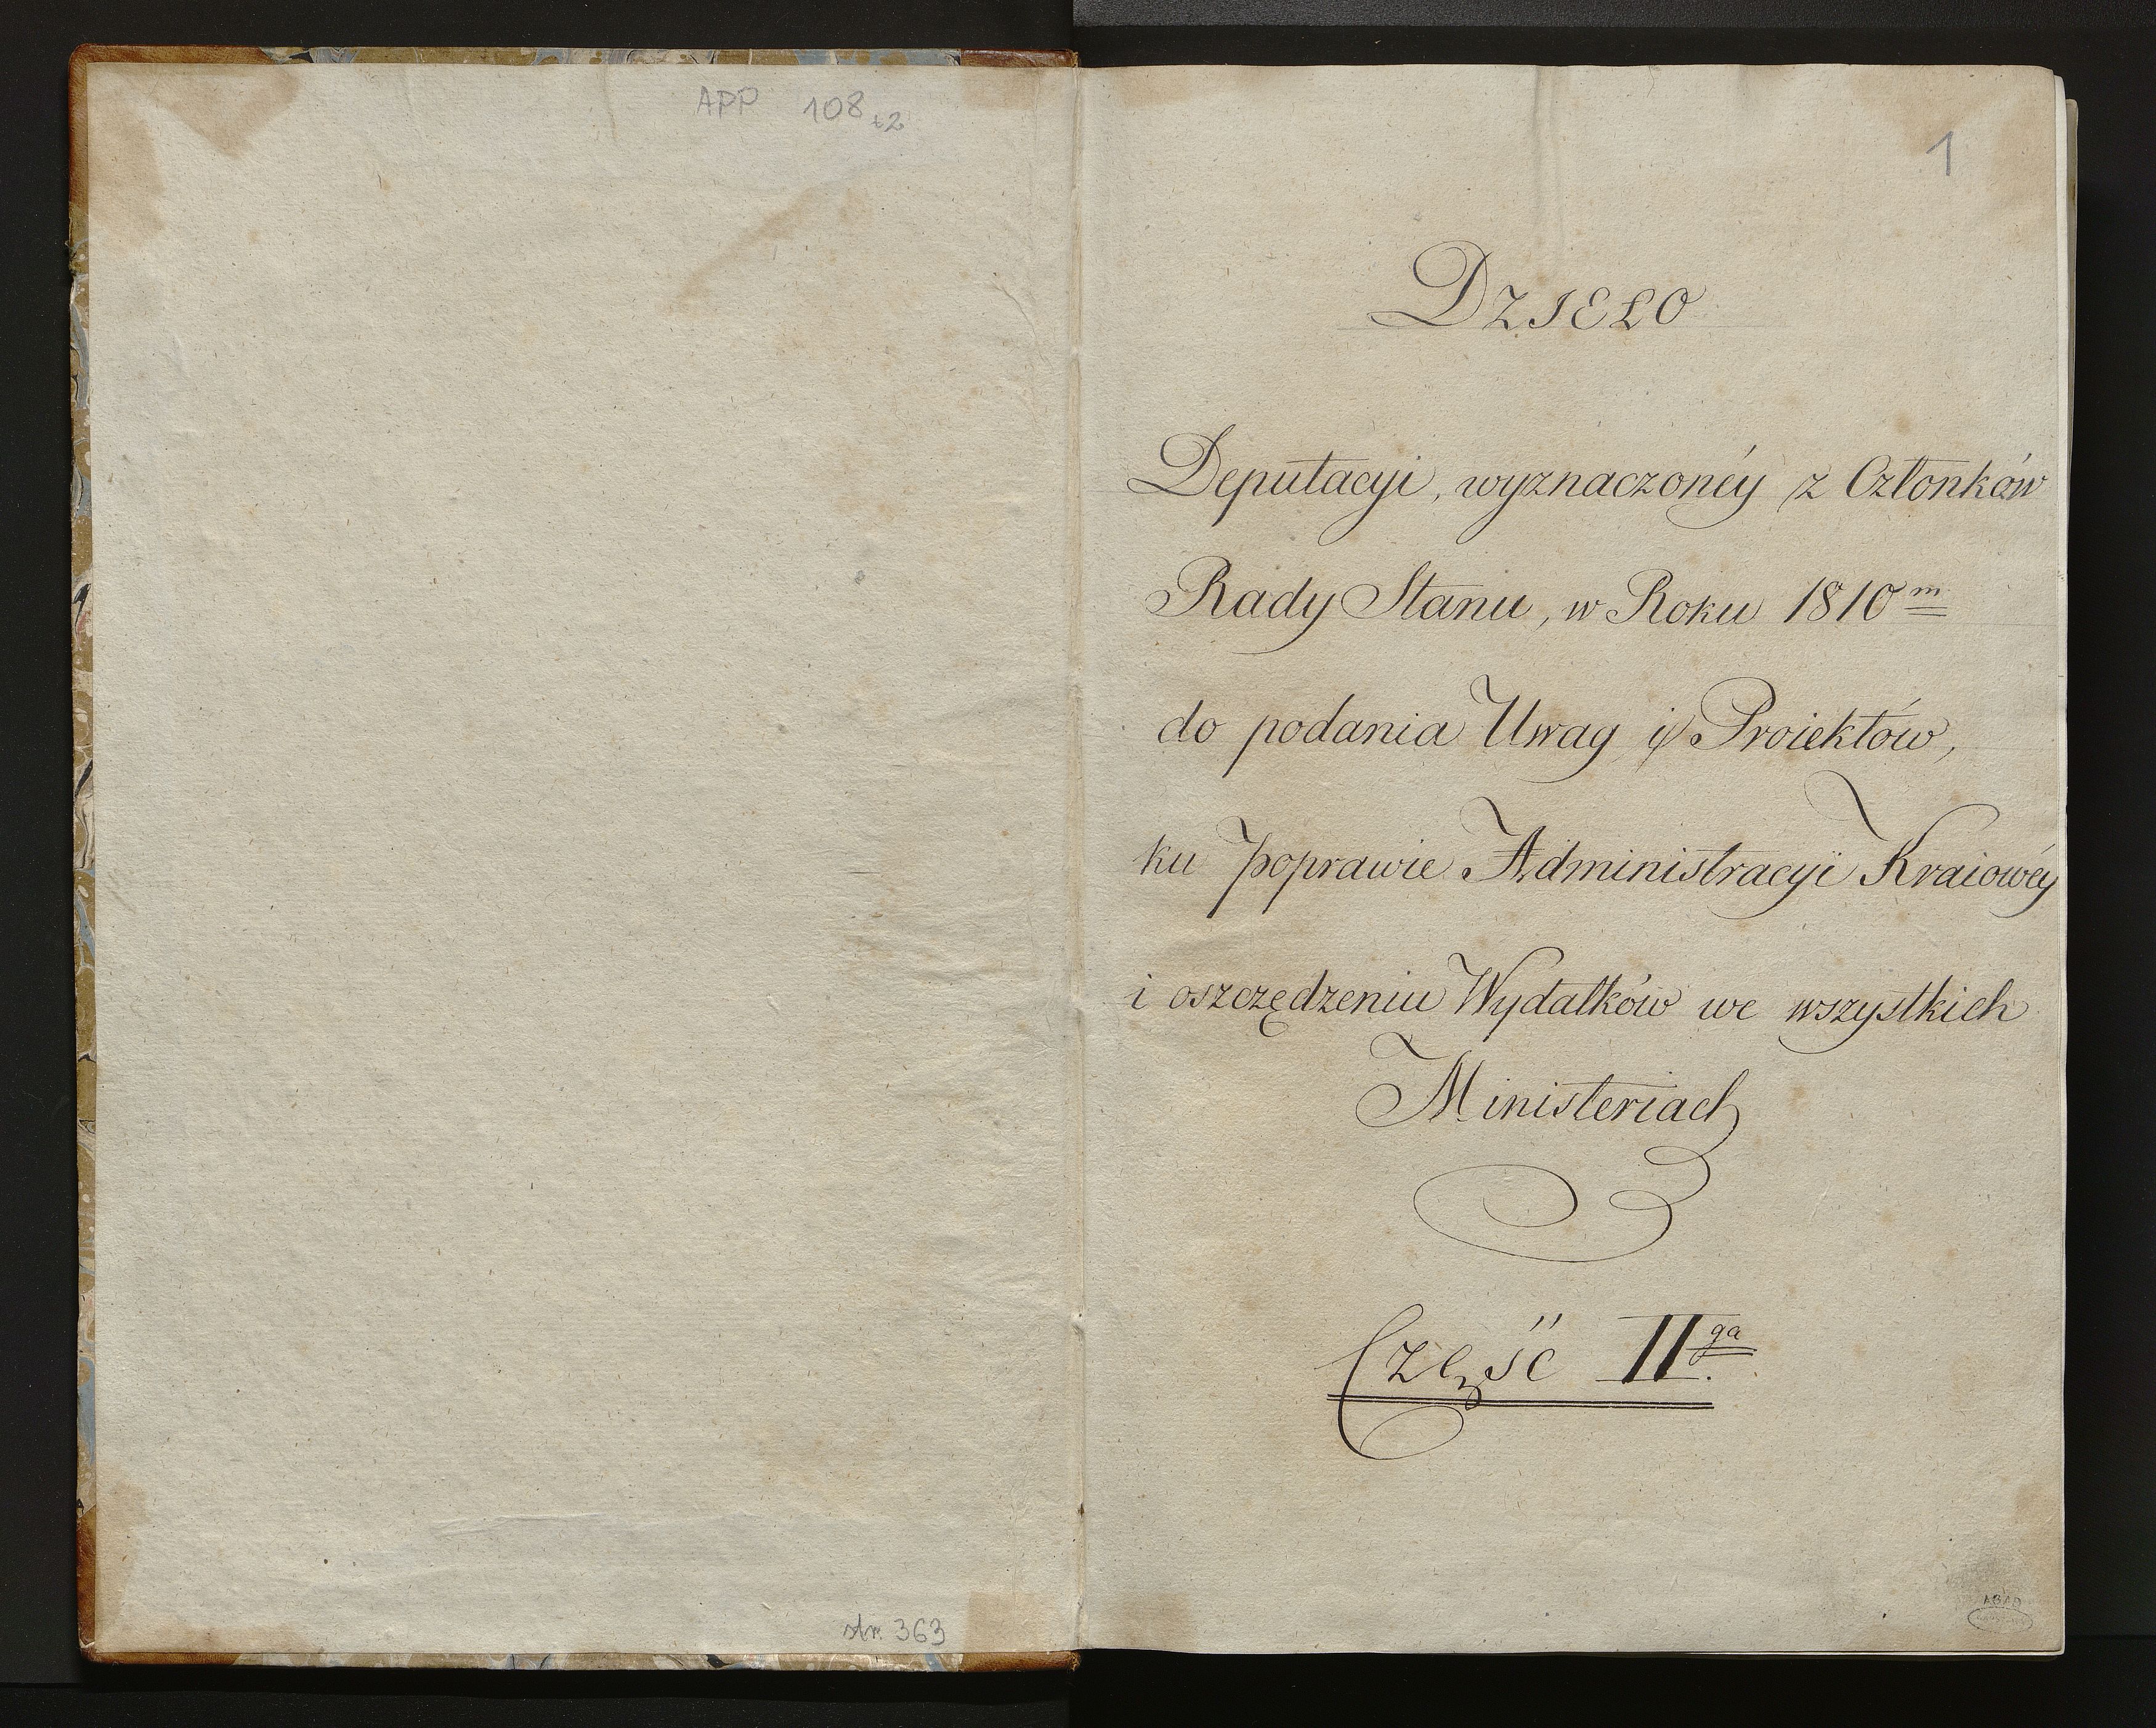 APP 108 t2
str. 363
1
DZIEŁO
Deputacyi, wyznaczonéy z Członków
Rady Stanu, w Roku 1810m
do podania Uwag i Proiektów,
ku poprawie Administracyi Kraiowéy
i oszczędzeniu Wydatków we wszystkich
Ministeriach
Część IIga.
AGAD